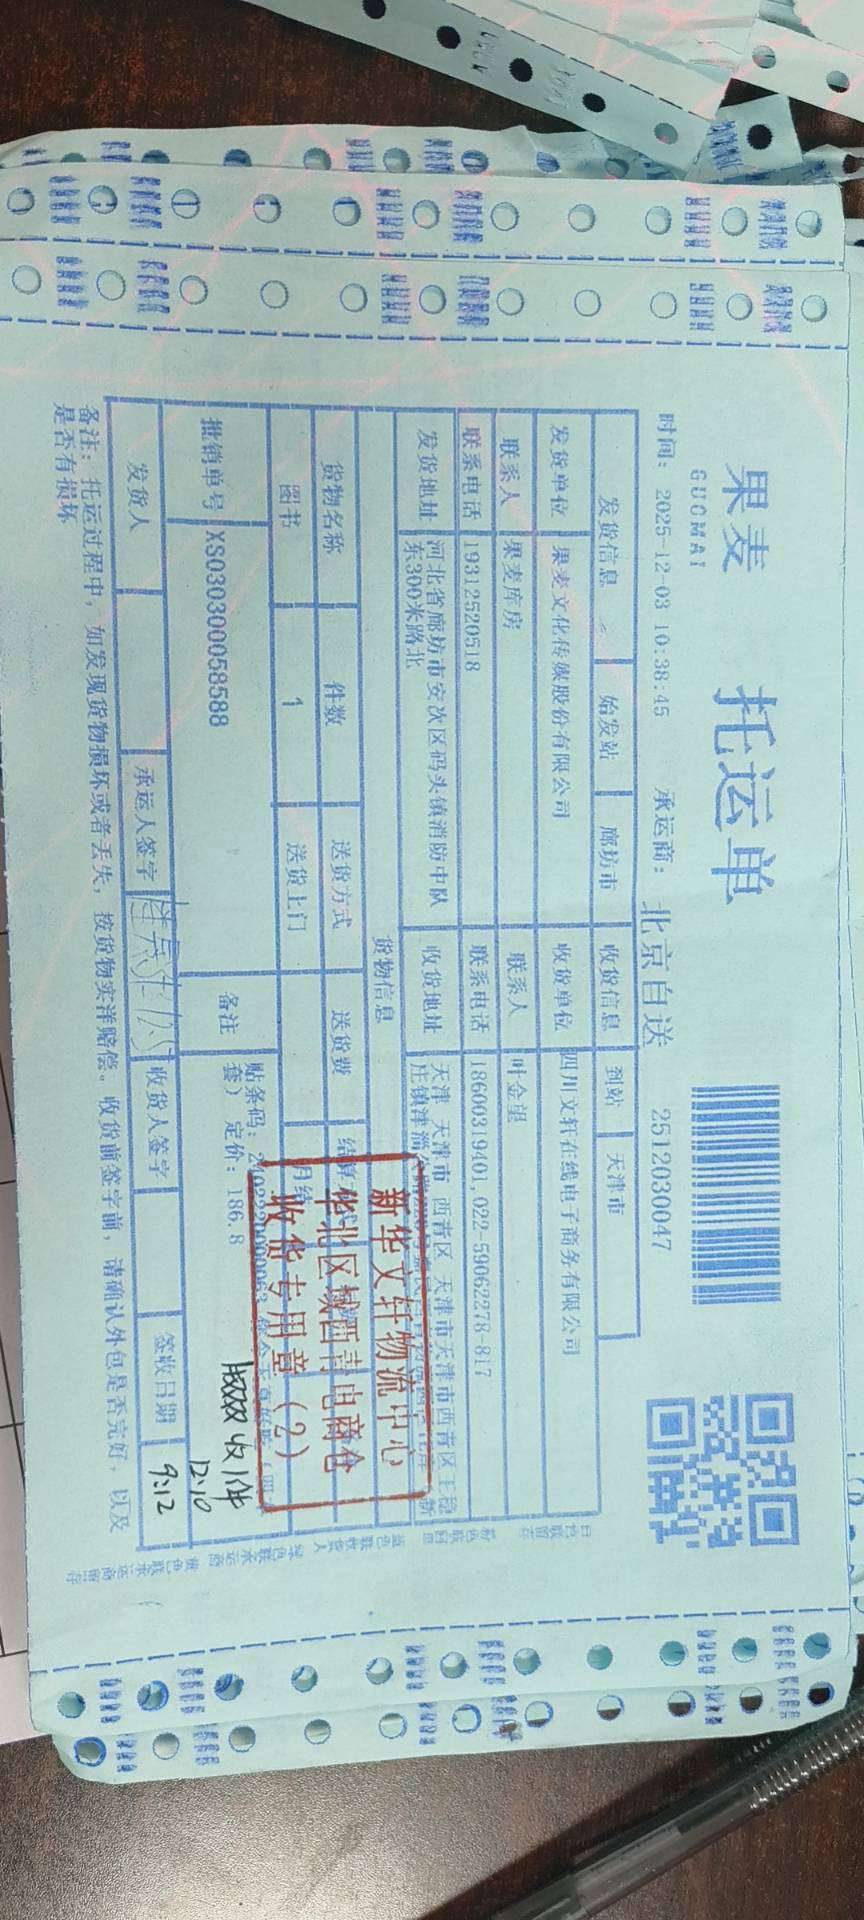 果麦
GUOMAI
托运单
时间: 2025-12-03 10:38:45 承运商: 北京自送 2512030047
发货信息 始发站 廊坊市 收货信息 到站 天津市
发货单位 果麦文化传媒股份有限公司 收货单位 四川文轩在线电子商务有限公司
联系人 果麦库房 联系人 叶金望
联系电话 19312520518 联系电话 18600319401,022-59062278-817
发货地址 河北省廊坊市安次区码头镇消防中队
东300米路北
收货地址 天津 天津市 西青区 天津市天津市西青区王稳
庄镇津淄
货物信息
货物名称 件数 送货方式 送货费 结算
图书 1 送货上门 月结
批销单号 XS030300058588 备注 贴条码:
套) 定价: 186.8
新华文轩物流中心
华北区域西青电商仓
收货专用章(2)
收1件
12.10
9:12
发货人 承运人签字 收货人签字 签收日期
备注: 托运过程中, 如发现货物损坏或者丢失, 按货物实洋赔偿。收货前签字前, 请确认外包是否完好, 以及
是否有损坏